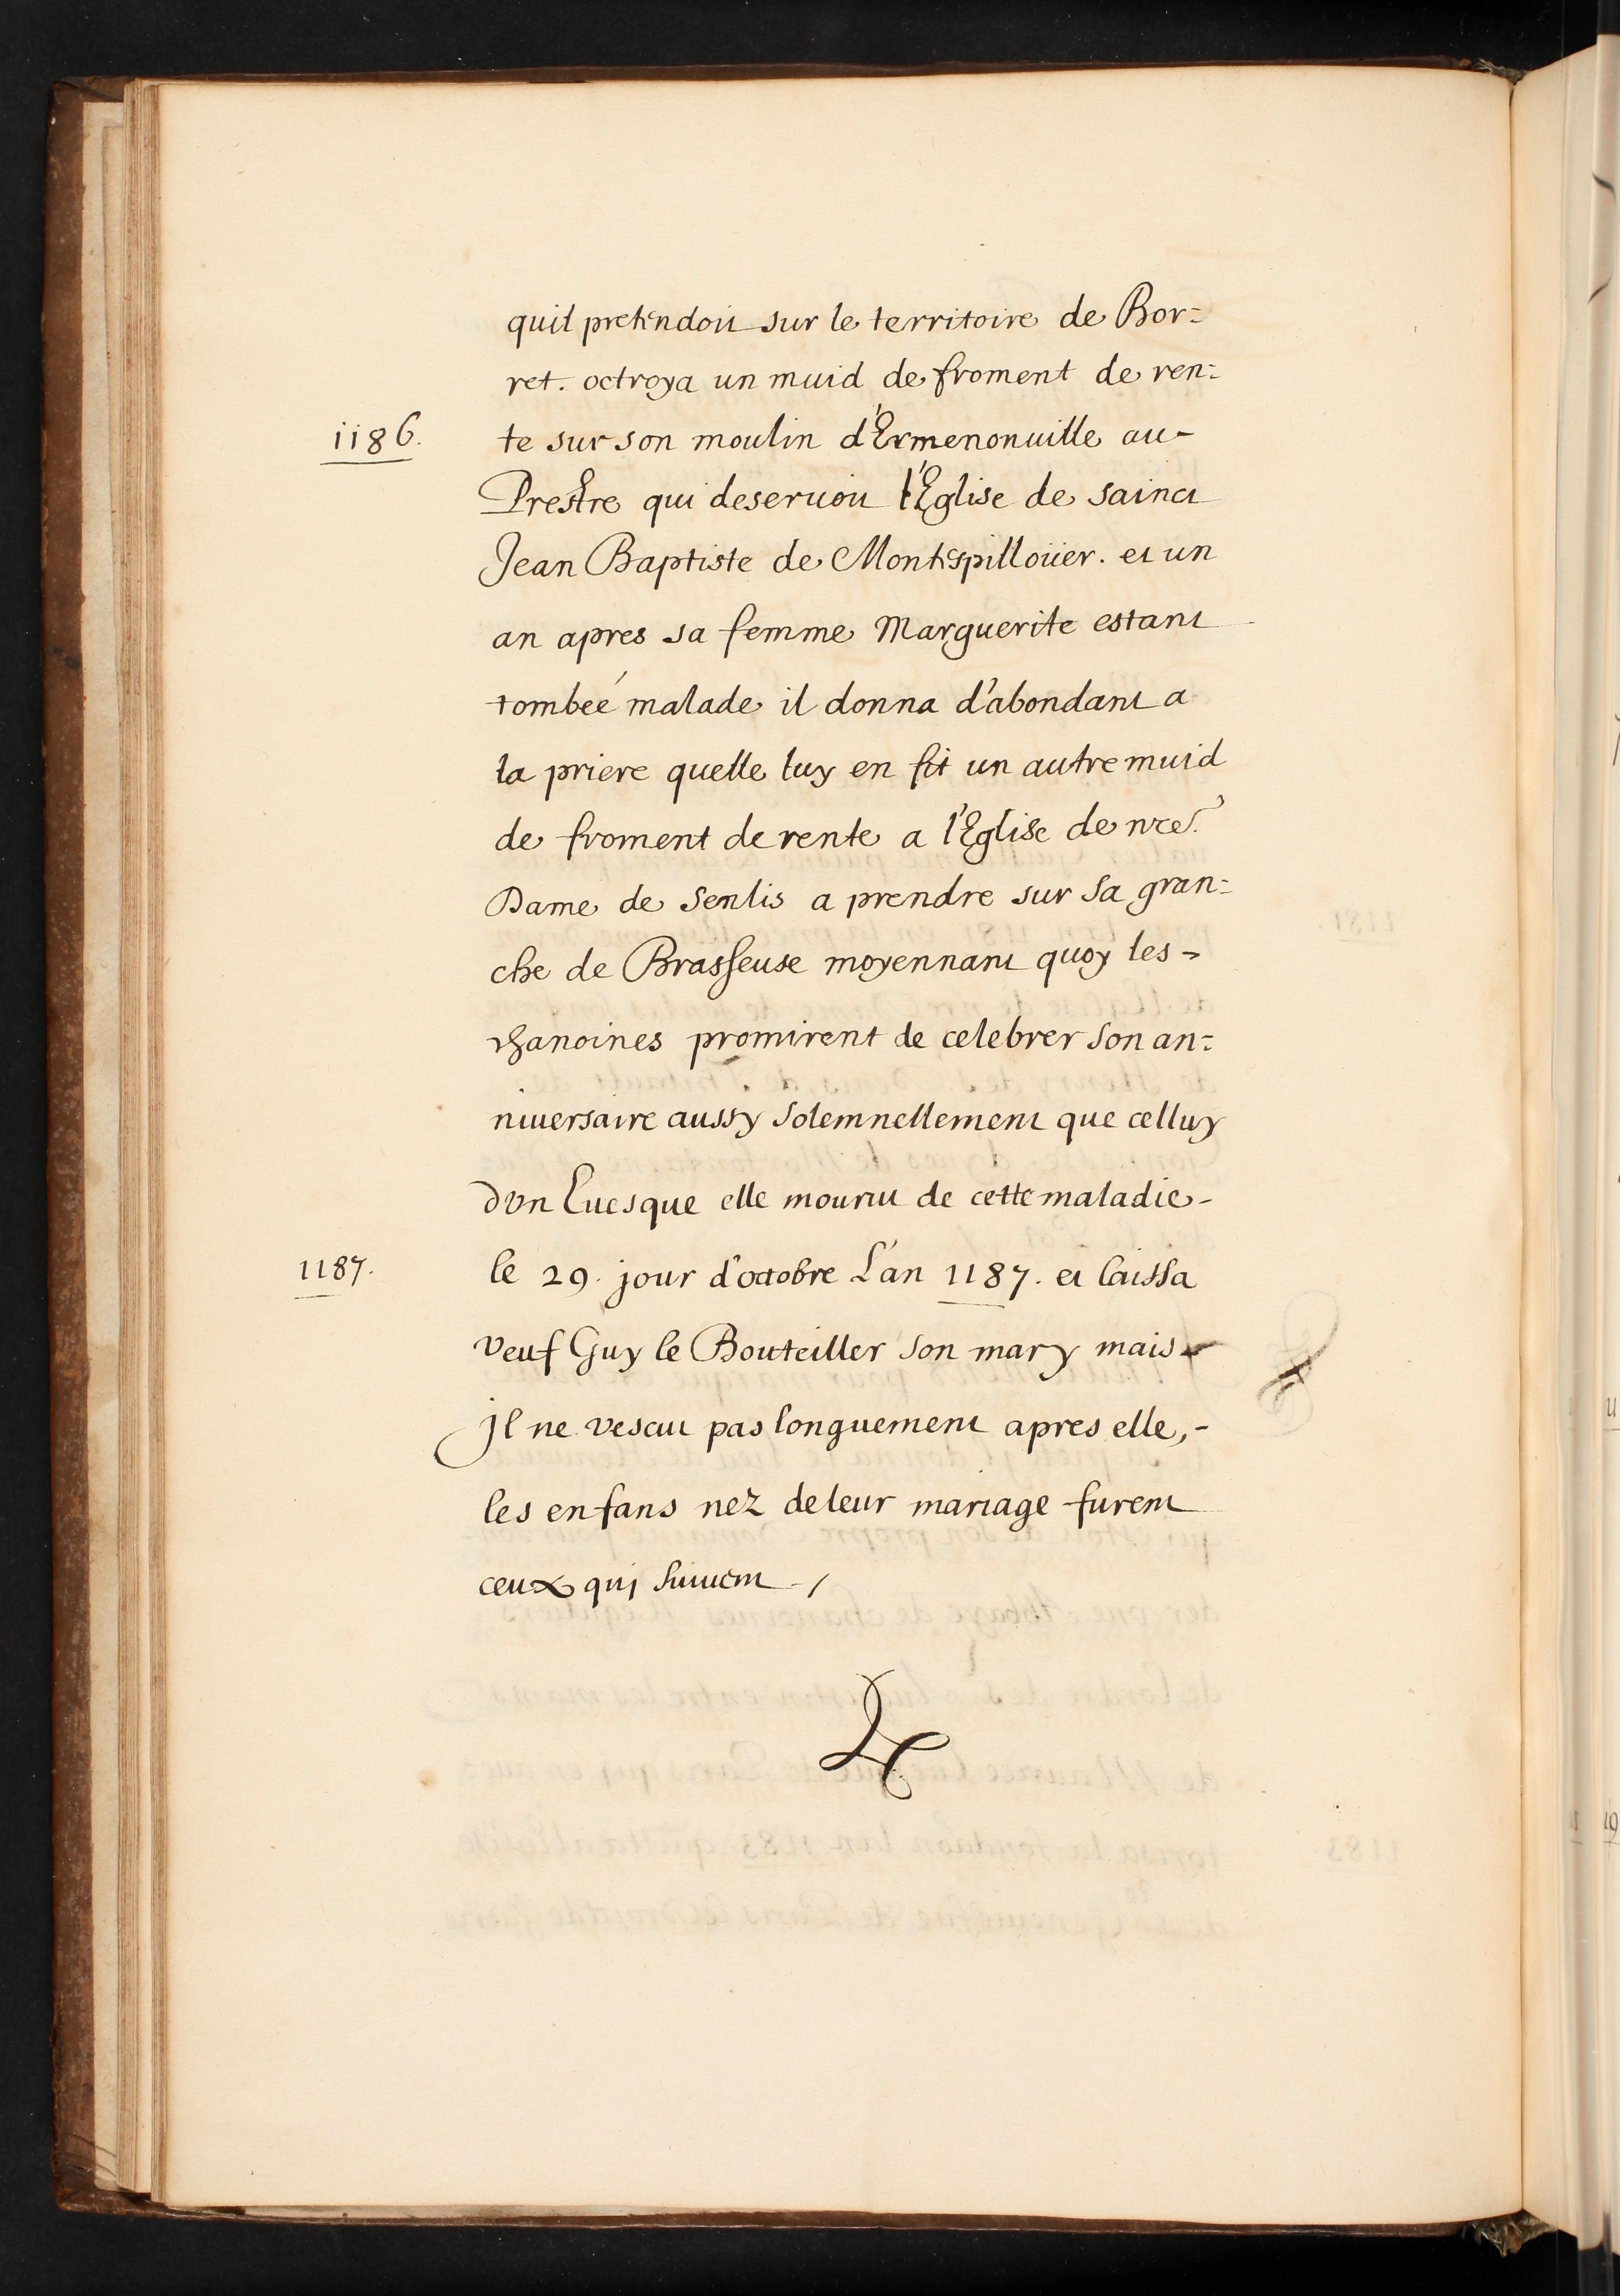 quil pretendoit sur le territoire de Bor=
ret. octroya un muid de froment de ren=
1186. te sur son moulin d'Ermenonuille au-
Prestre qui deseruoit l'Eglise de sainct
Jean Baptiste de Montespilloüer. et un
an apres sa femme Marguerite estant
tombeé malade il donna d'abondant a
la priere quelle luy en fit un autre muid
de froment de rente a l'Eglise de nre.
Dame de Senlis a prendre sur sa gran=
che de Brasseuse moyennant quoy les-
chanoines promirent de celebrer son an=
niuersaire aussy solemnellement que celluy
d'vn Euesque elle mourut de cette maladie-
1187. le 29. jour d'octobre L'an 1187. et laissa
veuf Guy le Bouteiller son mary mais
jl ne vescut pas longuement apres elle,-
les enfans nez de leur mariage furent
ceux quj suiuent-,